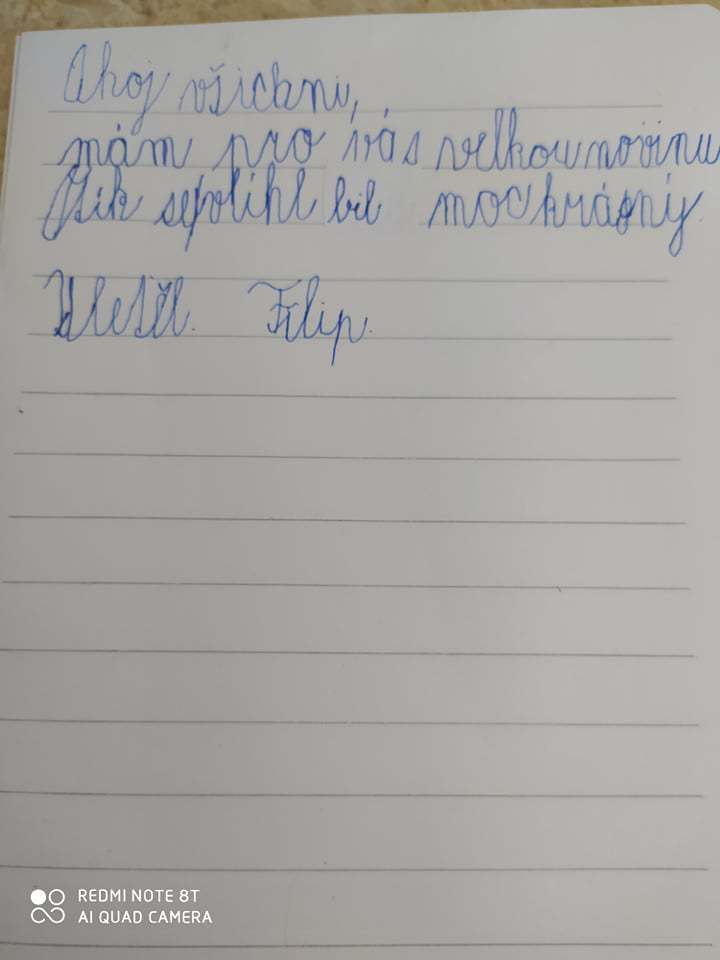 Ahoj všickni,
mám pro vás velkou novinu
Jžik se polihl bil moc krásný.
Uletěl. Filip.
REDMI NOTE 8T
AI QUAD CAMERA